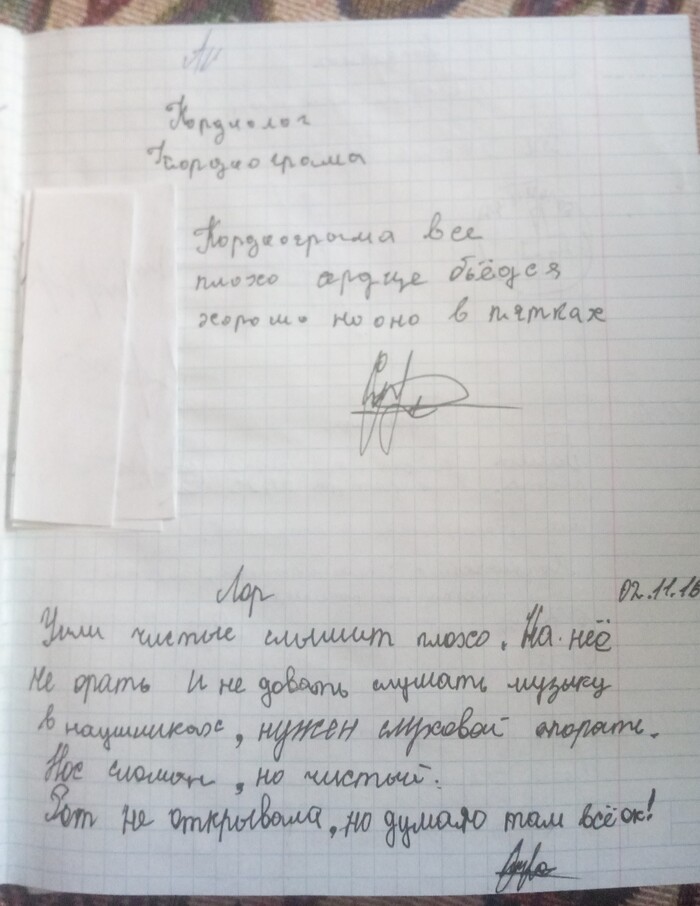 Кордиолог
Кордиограма
Кордиограма все
плохо сердце бьёдся
хорошо но оно в пятках
Лор
02.11.16
Ушли чистые слышит плохо. На неё
не орать и не довать слушать музыку
в наушниках, нужен слуховой опорать.
Нос сломан, но чистый.
Рот не открывала, но думаю там всё ок!